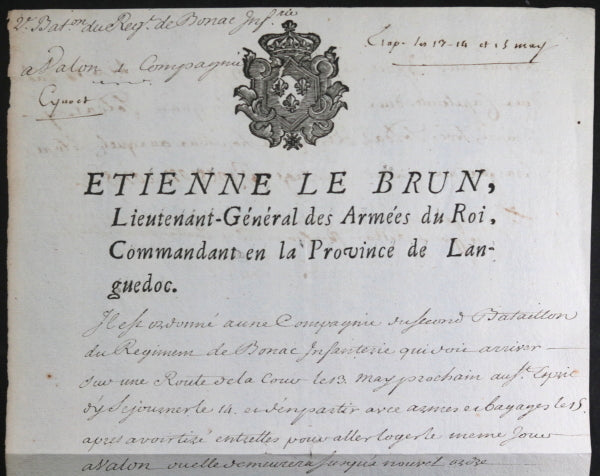 2e Bat.on du Reg.t de Bonac Inf.rie
a Valon 1 Compagnie
les 13 - 14 et 15 may
ETIENNE LE BRUN,
Lieutenant-Général des Armées du Roi,
Commandant en la Province de Lan-
guedoc.
Il est ordonné a une Compagnie du second Bataillon
du Regiment de Bonac Infanterie qui doit arriver
sur une Route de la Cour le 13. may prochain au
d'y Sejourner le 14. et d'en partir avec armes et Bagages le 15.
apres avoir tiré entr'elles pour aller loger le meme Jour
a Valon ou elle demeurera jusqu'a nouvel ordre